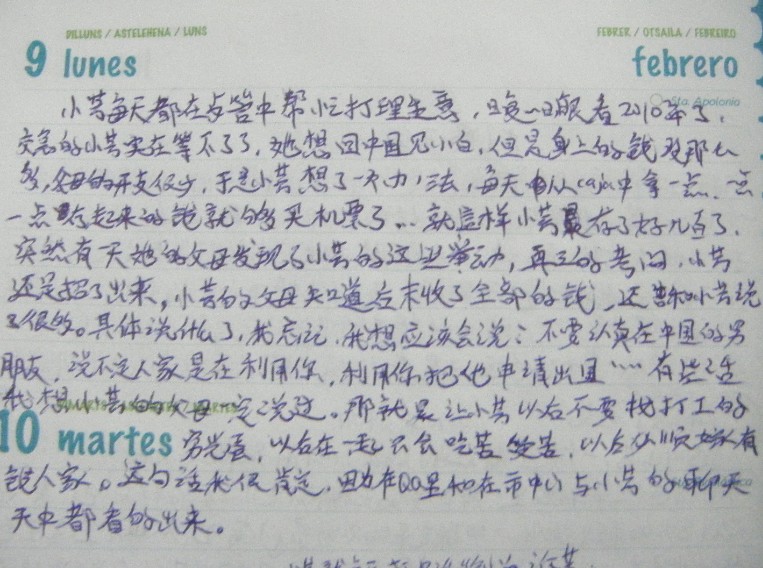 PILLUNS / ASTELEHENA / LUNS
FEBRER / OTSAILA / FEBREIRO
9 lunes
febrero
Sta. Apolonia
小芸每天都在与营中帮忙打理生意,日晚一日眼看2010年了,
交急的小芸实在等不了了,她想回中国见小白,但是身上的钱没那么
多,父母的开支很少,于是小芸想了一个办法,每天中从caja中拿一点,一点
一点贮起来的钱就能够买机票了...就这样小芸最存了好几百了,
突然有天她的父母发现了小芸的这些举动,再三的考问,小芸
还是招了出来,小芸的父母知道后末收了全部的钱,还告知小芸说
了很多。具体说什么了,我忘记,我想应该会说:不要认真在中国的男
朋友,说不定人家是在利用你,利用你把他申请出国……有些话
我想小芸的父母一定说过。那就是让小芸以后不要找打工的
10 martes
穷光蛋,以后在一起只会吃苦受苦,以后必须嫁有
钱人家。这句话我很肯定,因为在QQ里和在市中心与小芸的聊天
天中都看的出来。